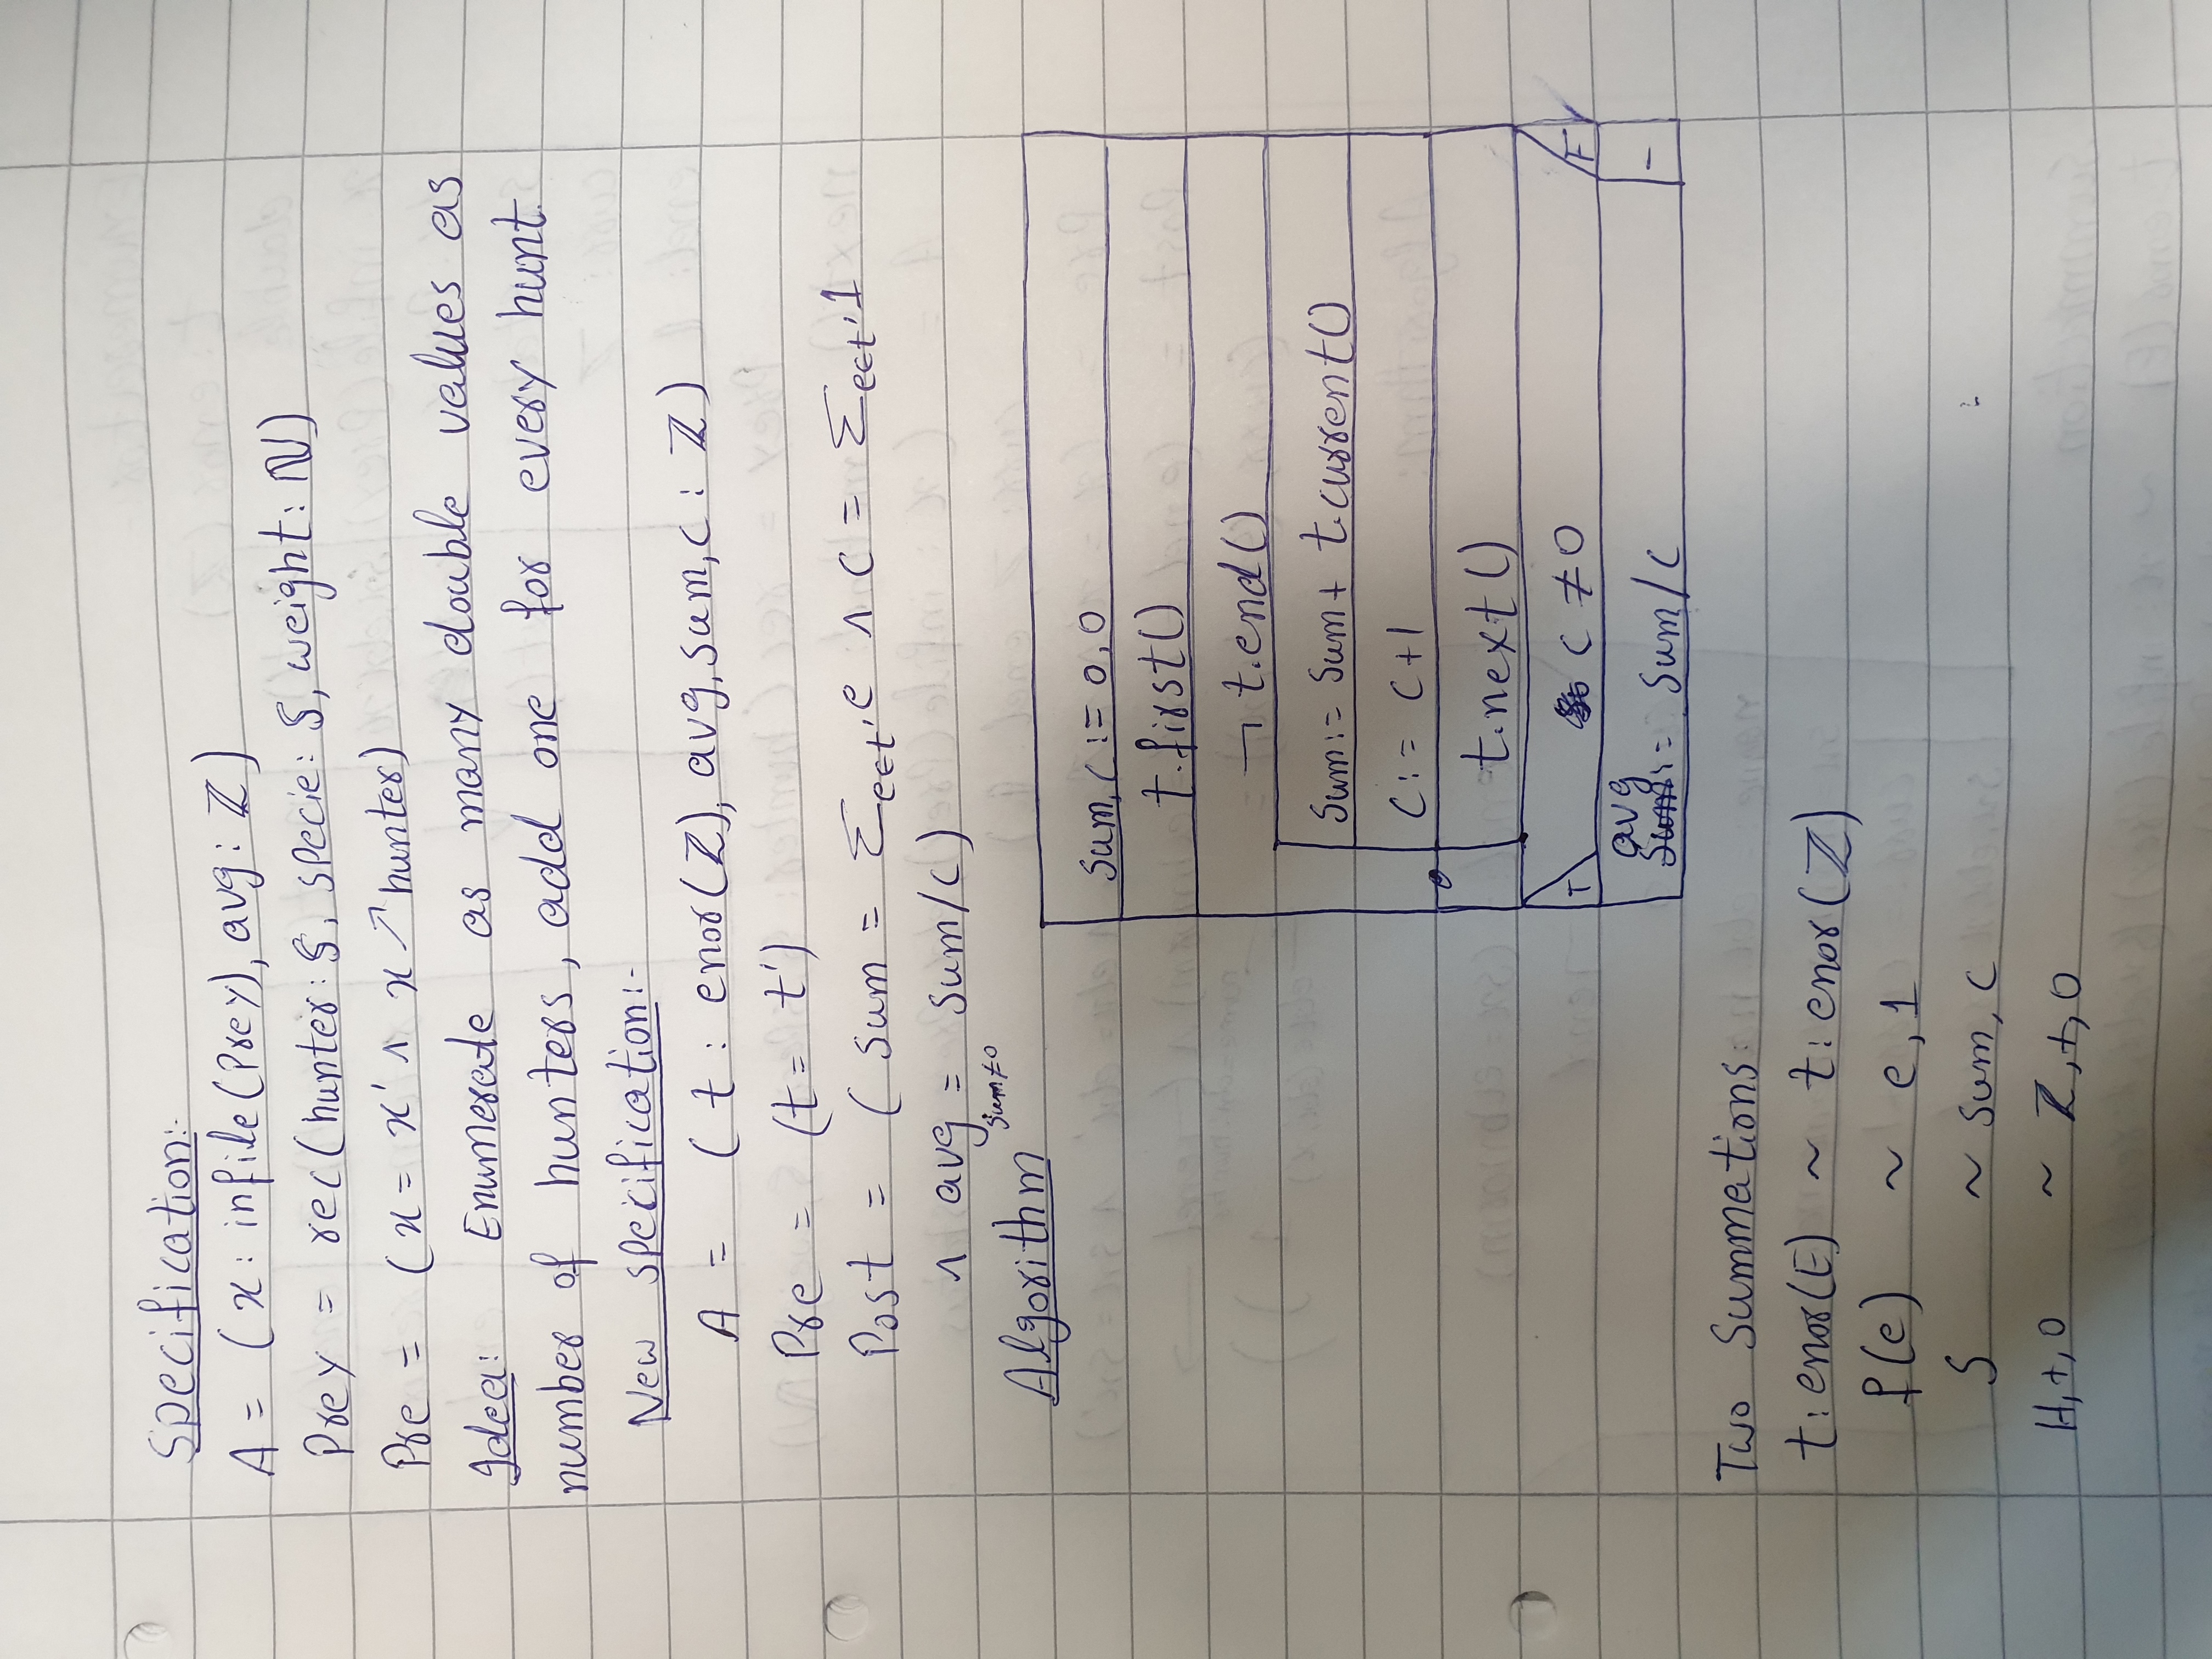 Specification:-
A = (x: infile(Prey), avg: ℤ)
Prey = rec(hunter: 𝕊, specie: 𝕊, weight: ℕ)
Pre = (x = x' ∧ x ↗ hunter)
Idea: Enumerate as many double values as
number of hunters, add one for every hunt.
New specification:-
A = (t: enor(ℤ), avg, sum, c: ℤ)
Pre = (t = t')
Post = (sum = Σe∈t' e ∧ c = Σe∈t' 1
∧ avg = sum/c)
sum≠0
Algorithm
sum, c := 0, 0
t.first()
¬ t.end()
sum := sum + t.current()
c := c+1
t.next()
T c ≠ 0 F
avg
Sum := sum/c -
Two Summations:
t: enor(E) ~ t: enor(ℤ)
f(e) ~ e, 1
S ~ sum, c
H, +, 0 ~ ℤ, +, 0